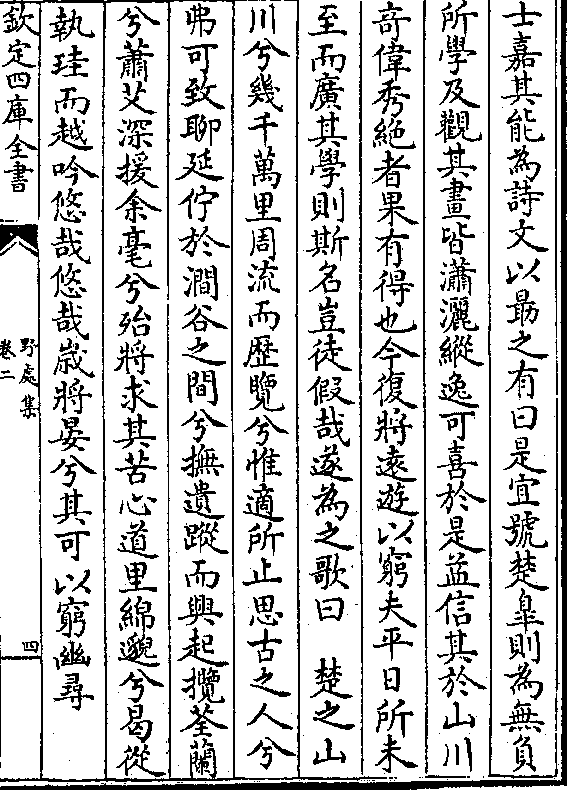 士嘉其能為詩文以勗之有曰是宜號楚臯則為無負
所學及觀其畫皆瀟灑縱逸可喜於是益信其於山川
竒偉秀絶者果有得也今復將遠遊以窮夫平日所未
至而廣其學則斯名豈徒假哉遂為之歌曰　楚之山
川兮幾千萬里周流而歴覽兮惟適所止思古之人兮
弗可致聊延佇於澗谷之間兮撫遺蹤而興起攬荃蘭
兮蕭艾深援余毫兮殆將求其苦心道里綿邈兮曷從
執珪而越吟悠哉悠哉嵗將晏兮其可以窮幽尋
欽定四庫全書
野處集
卷二
四